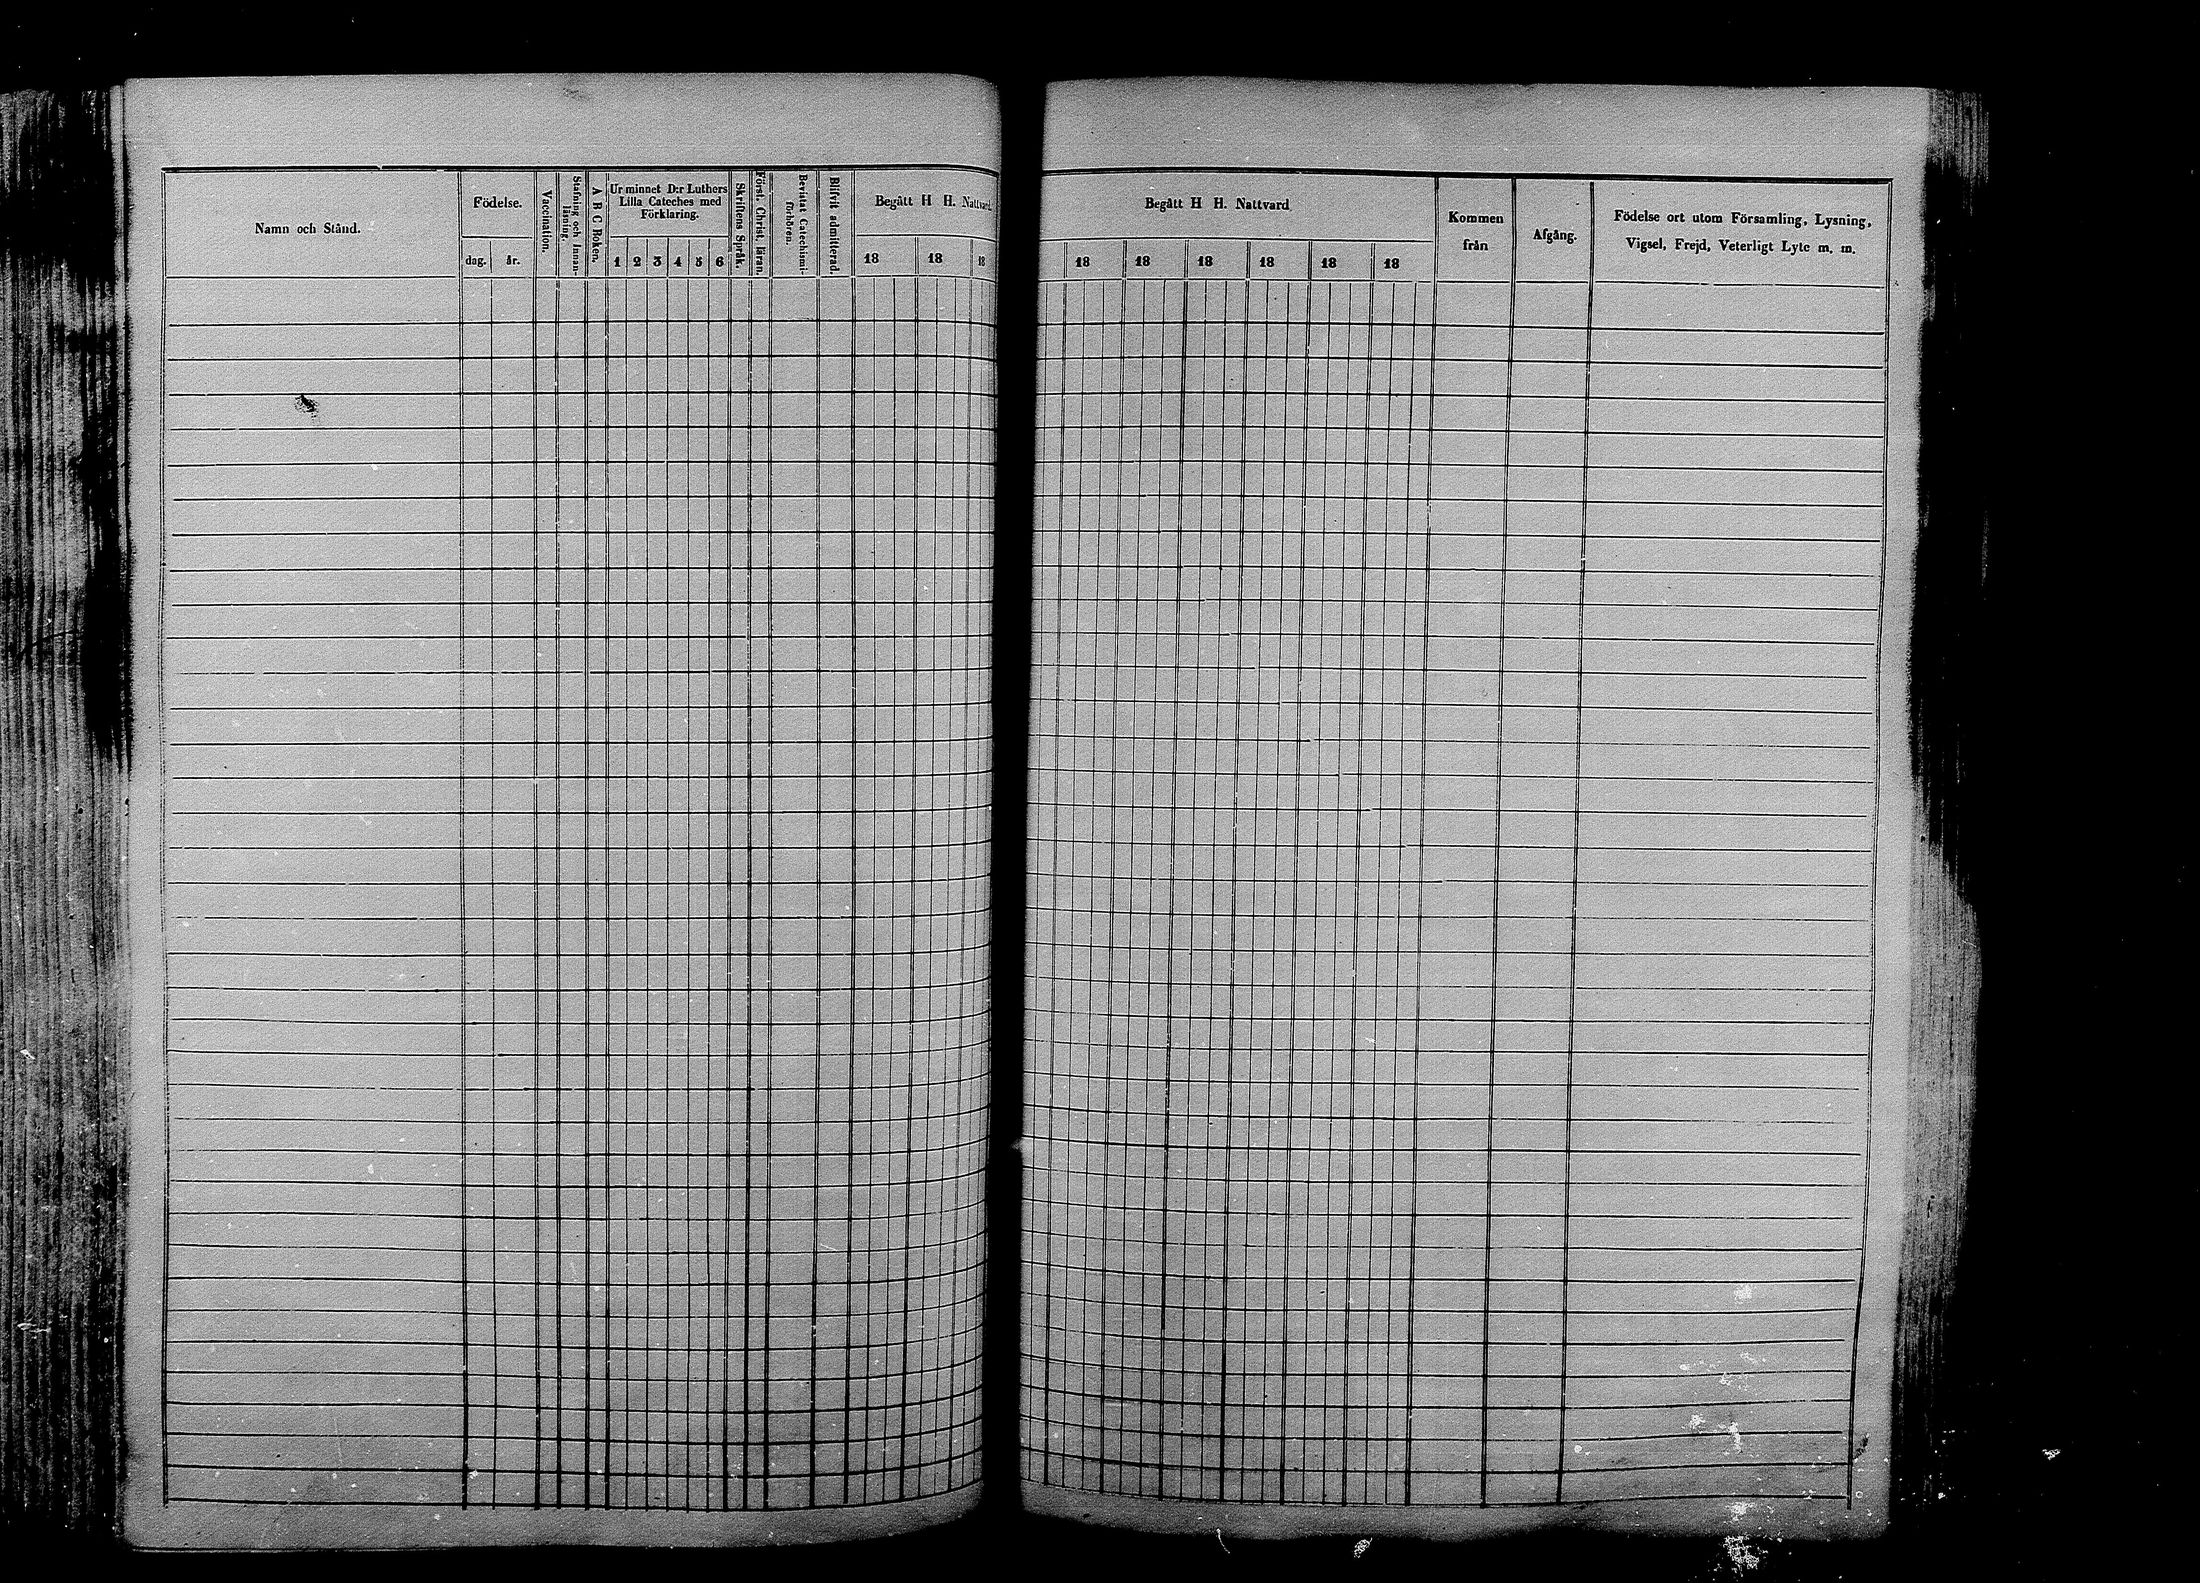 Namn och Stånd.
Födelse.
dag. år.
Vaccination.
Stafning och Innan-
läsning.
A B C Boken.
Ur minnet D:r Luthers
Lilla Cateches med
Förklaring.
1 2 3 4 5 6
Skriftens Språk.
Förest. Christ. läran.
Bevistat Catechismi-
förhören.
Blifvit admitterad.
Begått H H. Nattvard.
18 18 18
Begått H H. Nattvard
18 18 18 18 18 18
Kommen
från
Afgång.
Födelse ort utom Församling, Lysning,
Vigsel, Frejd, Veterligt Lyte m. m.